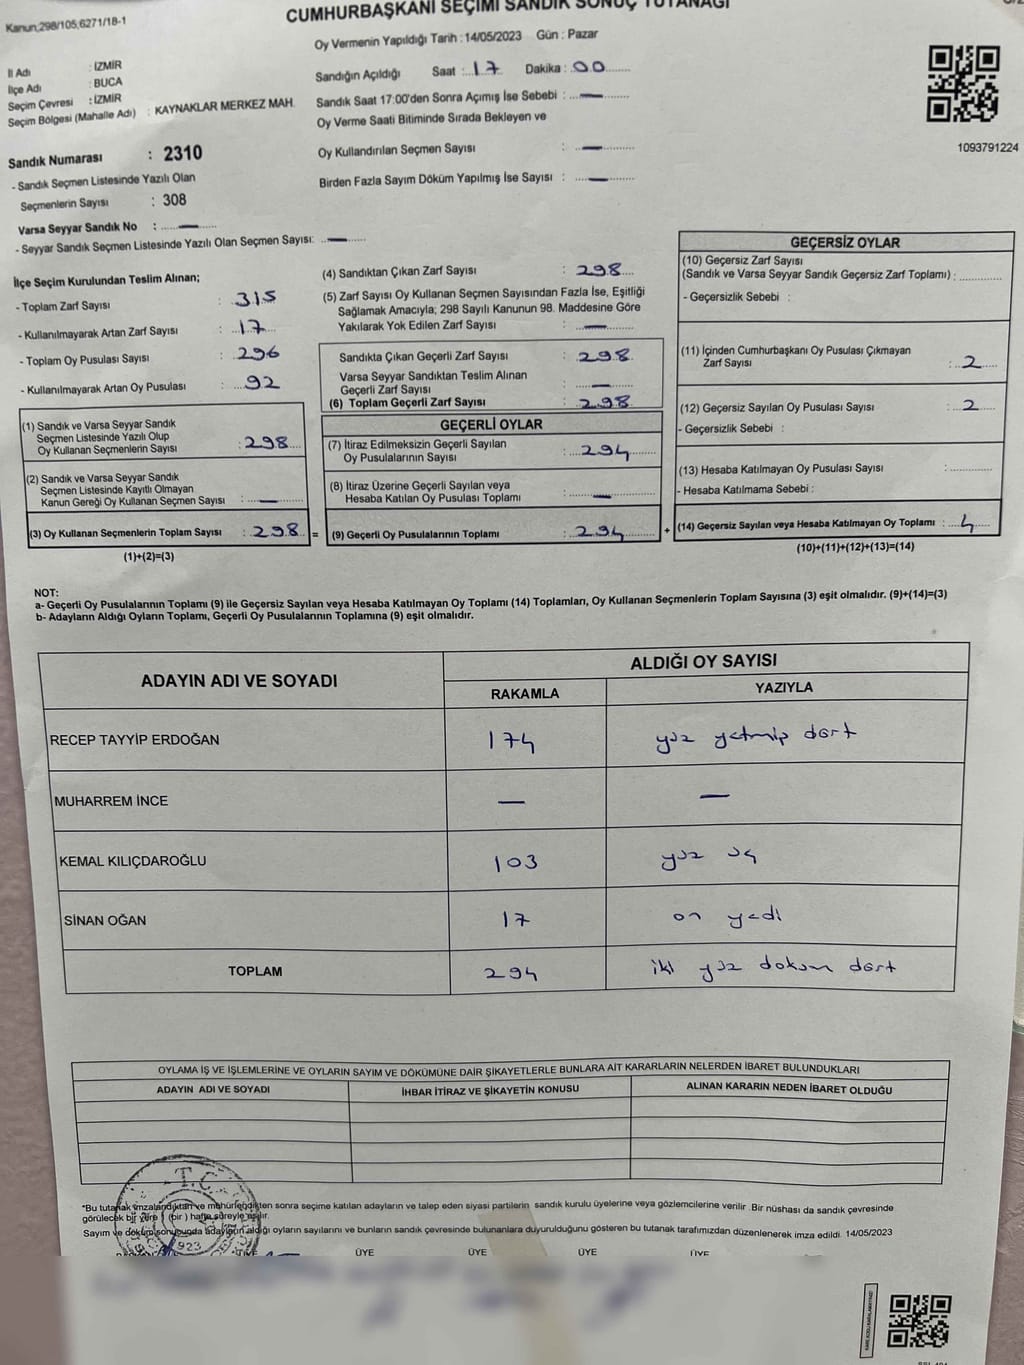 Kanun,298/105,6271/18-1
CUMHURBAŞKANI SEÇİMİ SANDIK SONUÇ TUTANAĞI
Oy Vermenin Yapıldığı Tarih : 14/05/2023 Gün : Pazar
İl Adı : İZMİR
İlçe Adı : BUCA
Seçim Çevresi : İZMİR
Seçim Bölgesi (Mahalle Adı) : KAYNAKLAR MERKEZ MAH.
Sandık Numarası : 2310
- Sandık Seçmen Listesinde Yazılı Olan
Seçmenlerin Sayısı : 308
Varsa Seyyar Sandık No : —
- Seyyar Sandık Seçmen Listesinde Yazılı Olan Seçmen Sayısı: —
Sandığın Açıldığı Saat : 17 Dakika : 00
Sandık Saat 17:00'den Sonra Açımış İse Sebebi : —
Oy Verme Saati Bitiminde Sırada Bekleyen ve
Oy Kullandırılan Seçmen Sayısı : —
Birden Fazla Sayım Döküm Yapılmış İse Sayısı : —
1093791224
İlçe Seçim Kurulundan Teslim Alınan;
- Toplam Zarf Sayısı : 315
- Kullanılmayarak Artan Zarf Sayısı : 17
- Toplam Oy Pusulası Sayısı : 296
- Kullanılmayarak Artan Oy Pusulası : 92
(1) Sandık ve Varsa Seyyar Sandık
Seçmen Listesinde Yazılı Olup
Oy Kullanan Seçmenlerin Sayısı : 298
(2) Sandık ve Varsa Seyyar Sandık
Seçmen Listesinde Kayıtlı Olmayan
Kanun Gereği Oy Kullanan Seçmen Sayısı : —
(3) Oy Kullanan Seçmenlerin Toplam Sayısı : 298 =
(1)+(2)=(3)
(4) Sandıktan Çıkan Zarf Sayısı : 298
(5) Zarf Sayısı Oy Kullanan Seçmen Sayısından Fazla İse, Eşitliği
Sağlamak Amacıyla; 298 Sayılı Kanunun 98. Maddesine Göre
Yakılarak Yok Edilen Zarf Sayısı : —
Sandıkta Çıkan Geçerli Zarf Sayısı : 298
Varsa Seyyar Sandıktan Teslim Alınan
Geçerli Zarf Sayısı : —
(6) Toplam Geçerli Zarf Sayısı : 298
GEÇERLİ OYLAR
(7) İtiraz Edilmeksizin Geçerli Sayılan
Oy Pusulalarının Sayısı : 294
(8) İtiraz Üzerine Geçerli Sayılan veya
Hesaba Katılan Oy Pusulası Toplamı : —
(9) Geçerli Oy Pusulalarının Toplamı : 294 +
GEÇERSİZ OYLAR
(10) Geçersiz Zarf Sayısı
(Sandık ve Varsa Seyyar Sandık Geçersiz Zarf Toplamı) :
- Geçersizlik Sebebi :
(11) İçinden Cumhurbaşkanı Oy Pusulası Çıkmayan
Zarf Sayısı : 2
(12) Geçersiz Sayılan Oy Pusulası Sayısı : 2
- Geçersizlik Sebebi :
(13) Hesaba Katılmayan Oy Pusulası Sayısı :
- Hesaba Katılmama Sebebi :
(14) Geçersiz Sayılan veya Hesaba Katılmayan Oy Toplamı : 4
(10)+(11)+(12)+(13)=(14)
NOT:
a- Geçerli Oy Pusulalarının Toplamı (9) ile Geçersiz Sayılan veya Hesaba Katılmayan Oy Toplamı (14) Toplamları, Oy Kullanan Seçmenlerin Toplam Sayısına (3) eşit olmalıdır. (9)+(14)=(3)
b- Adayların Aldığı Oyların Toplamı, Geçerli Oy Pusulalarının Toplamına (9) eşit olmalıdır.
ADAYIN ADI VE SOYADI ALDIĞI OY SAYISI
RAKAMLA YAZIYLA
RECEP TAYYİP ERDOĞAN 174 yüz yetmiş dört
MUHARREM İNCE — —
KEMAL KILIÇDAROĞLU 103 yüz üç
SİNAN OĞAN 17 on yedi
TOPLAM 294 iki yüz doksan dört
OYLAMA İŞ VE İŞLEMLERİNE VE OYLARIN SAYIM VE DÖKÜMÜNE DAİR ŞİKAYETLERLE BUNLARA AİT KARARLARIN NELERDEN İBARET BULUNDUKLARI
ADAYIN ADI VE SOYADI İHBAR İTİRAZ VE ŞİKAYETİN KONUSU ALINAN KARARIN NEDEN İBARET OLDUĞU
T.C.
*Bu tutanak imzalandıktan ve mühürlendikten sonra seçime katılan adayların ve talep eden siyasi partilerin sandık kurulu üyelerine veya gözlemcilerine verilir .Bir nüshası da sandık çevresinde
görülecek bir yere 1 (bir ) hafta süreyle asılır.
Sayım ve döküm sonucunda adayların aldığı oyların sayılarını ve bunların sandık çevresinde bulunanlara duyurulduğunu gösteren bu tutanak tarafımızdan düzenlenerek imza edildi. 14/05/2023
923
ÜYE ÜYE ÜYE ÜYE